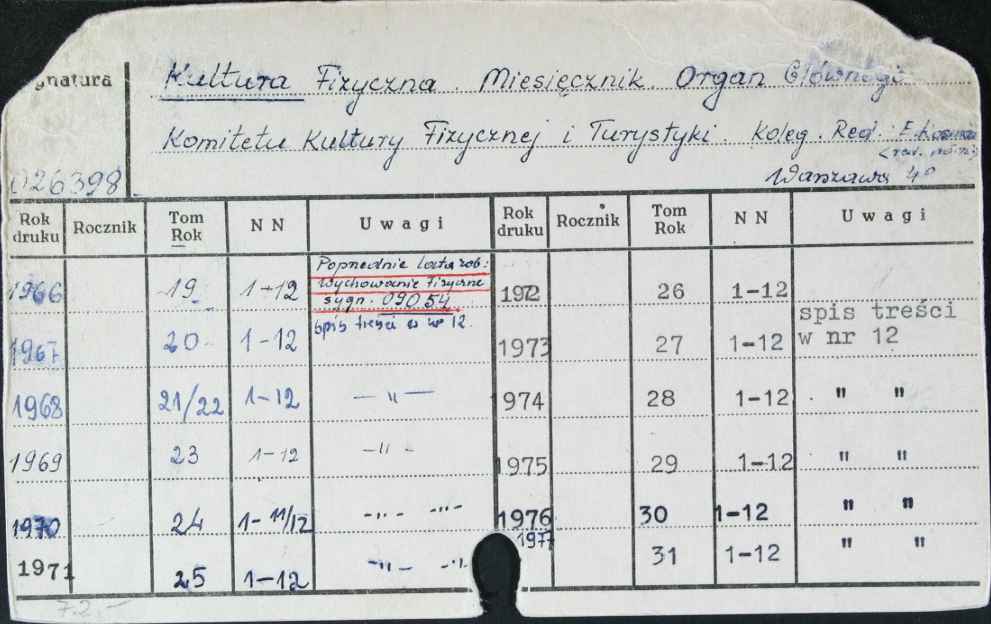 gnatura
Kultura Fizyczna. Miesięcznik. Organ Głównego
Komitetu Kultury Fizycznej i Turystyki. Koleg. Red.
026398
Warszawa 4°
Rok druku Rocznik Tom Rok N N Uwagi Rok druku Rocznik Tom Rok N N Uwagi
Poprzednie lata zob:
Wychowanie Fizyczne
sygn. 09054
spis treści w nr 12.
1966 19 1-12 1972 26 1-12
spis treści
w nr 12
1967 20 1-12 1973 27 1-12
1968 21/22 1-12 — " — 1974 28 1-12 " "
1969 23 1-12 -"- 1975 29 1-12 " "
1970 24 1-11/12 -"- -"- 1976 30 1-12 " "
1971 25 1-12 -"- -"- 1977 31 1-12 " "
72.-